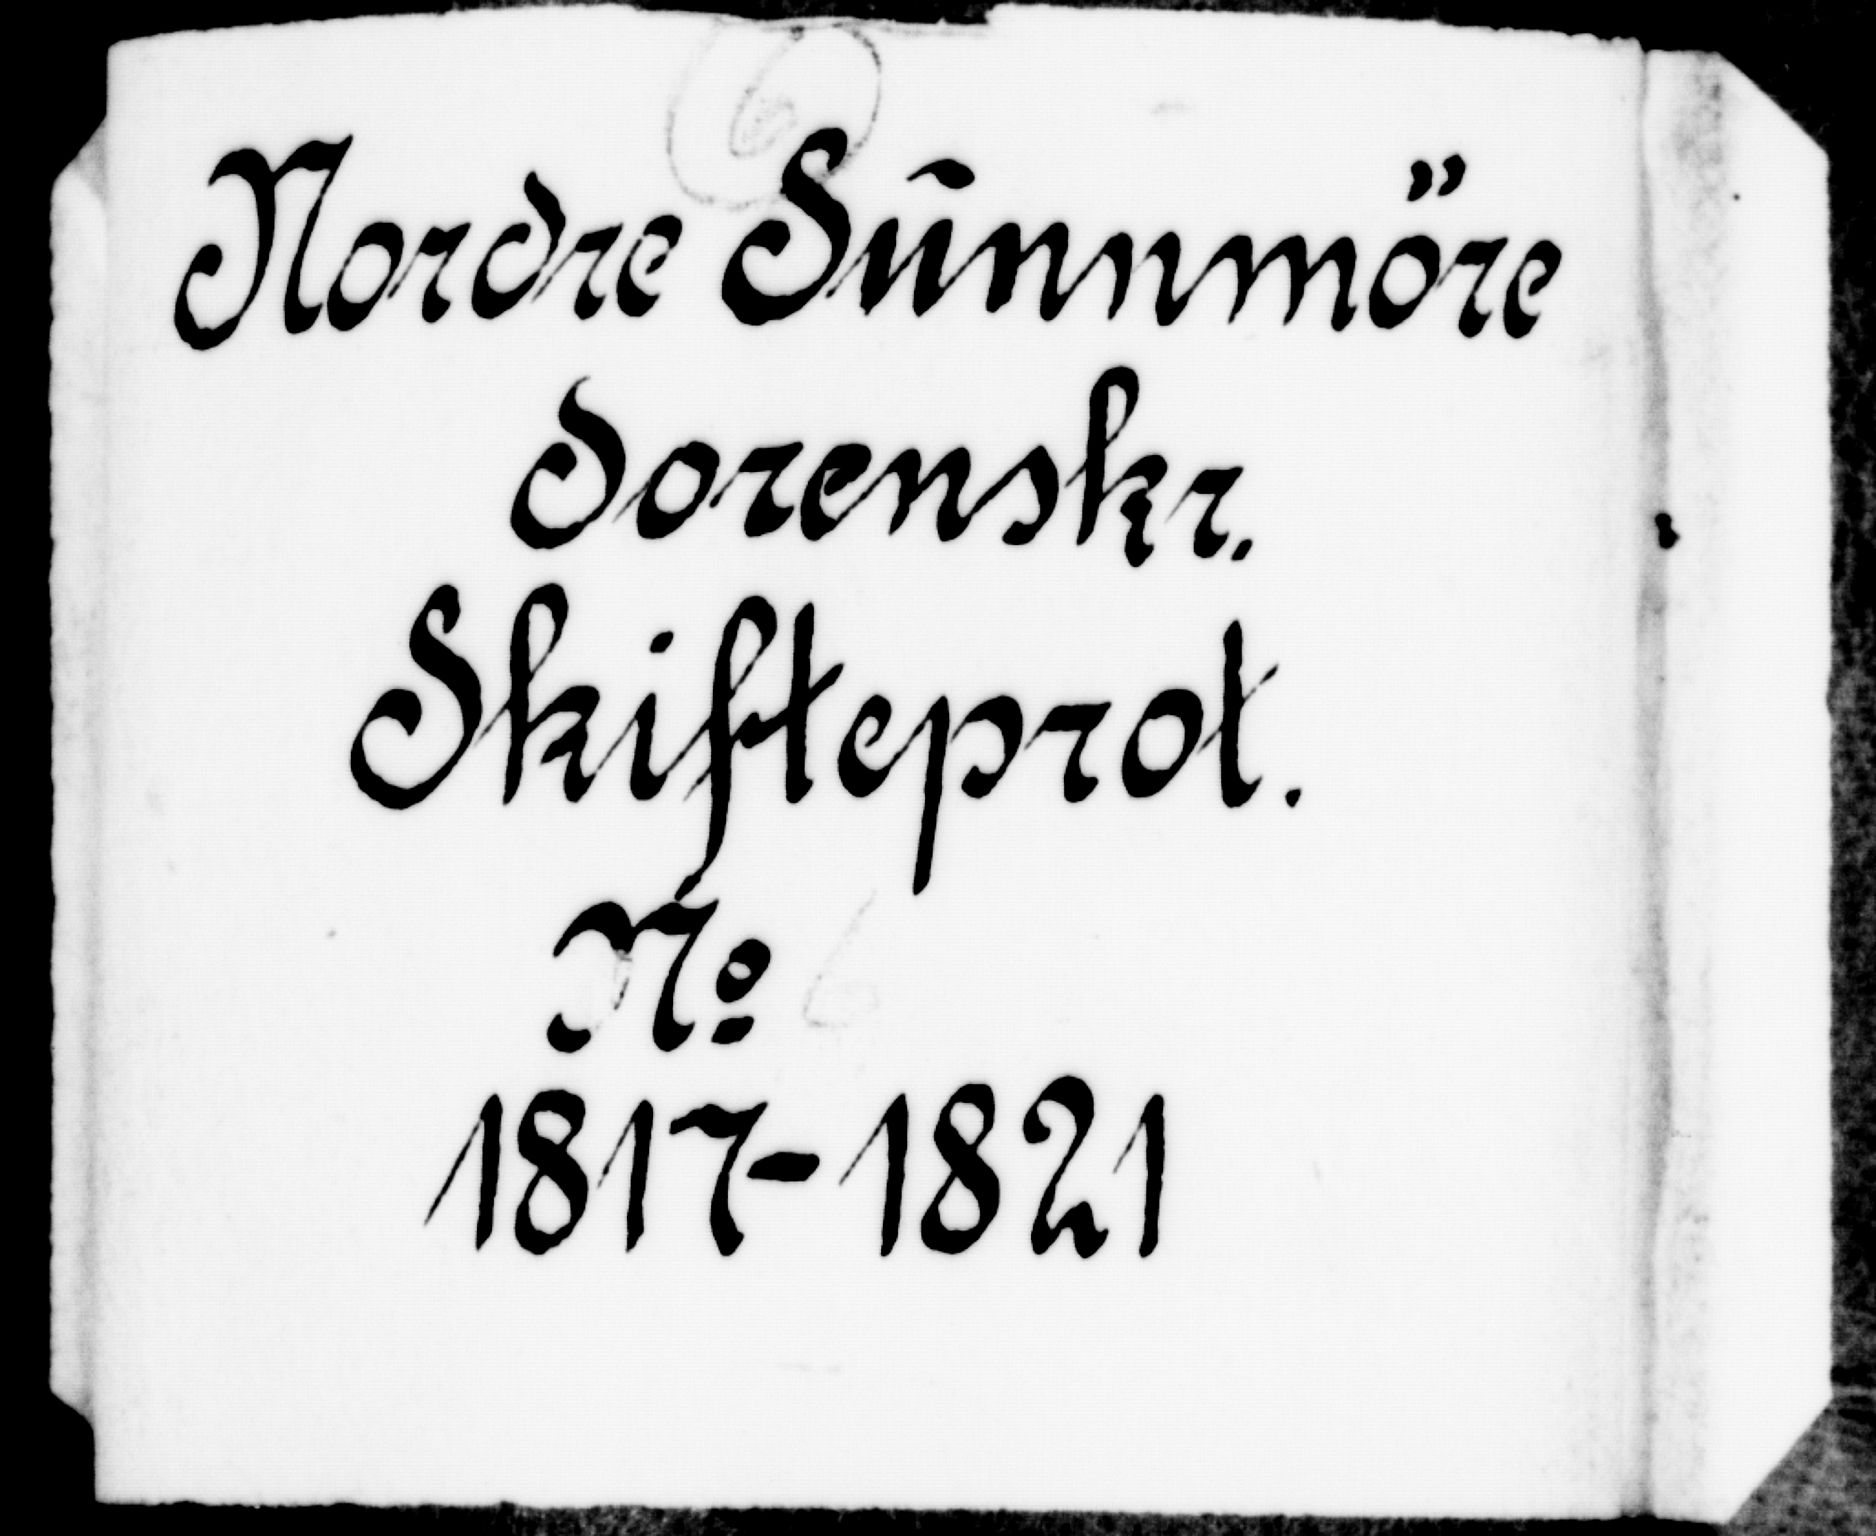 6
Nordre Sūnnmöre
Sorenskr.
Skifteprot.
No 6
1817-1821